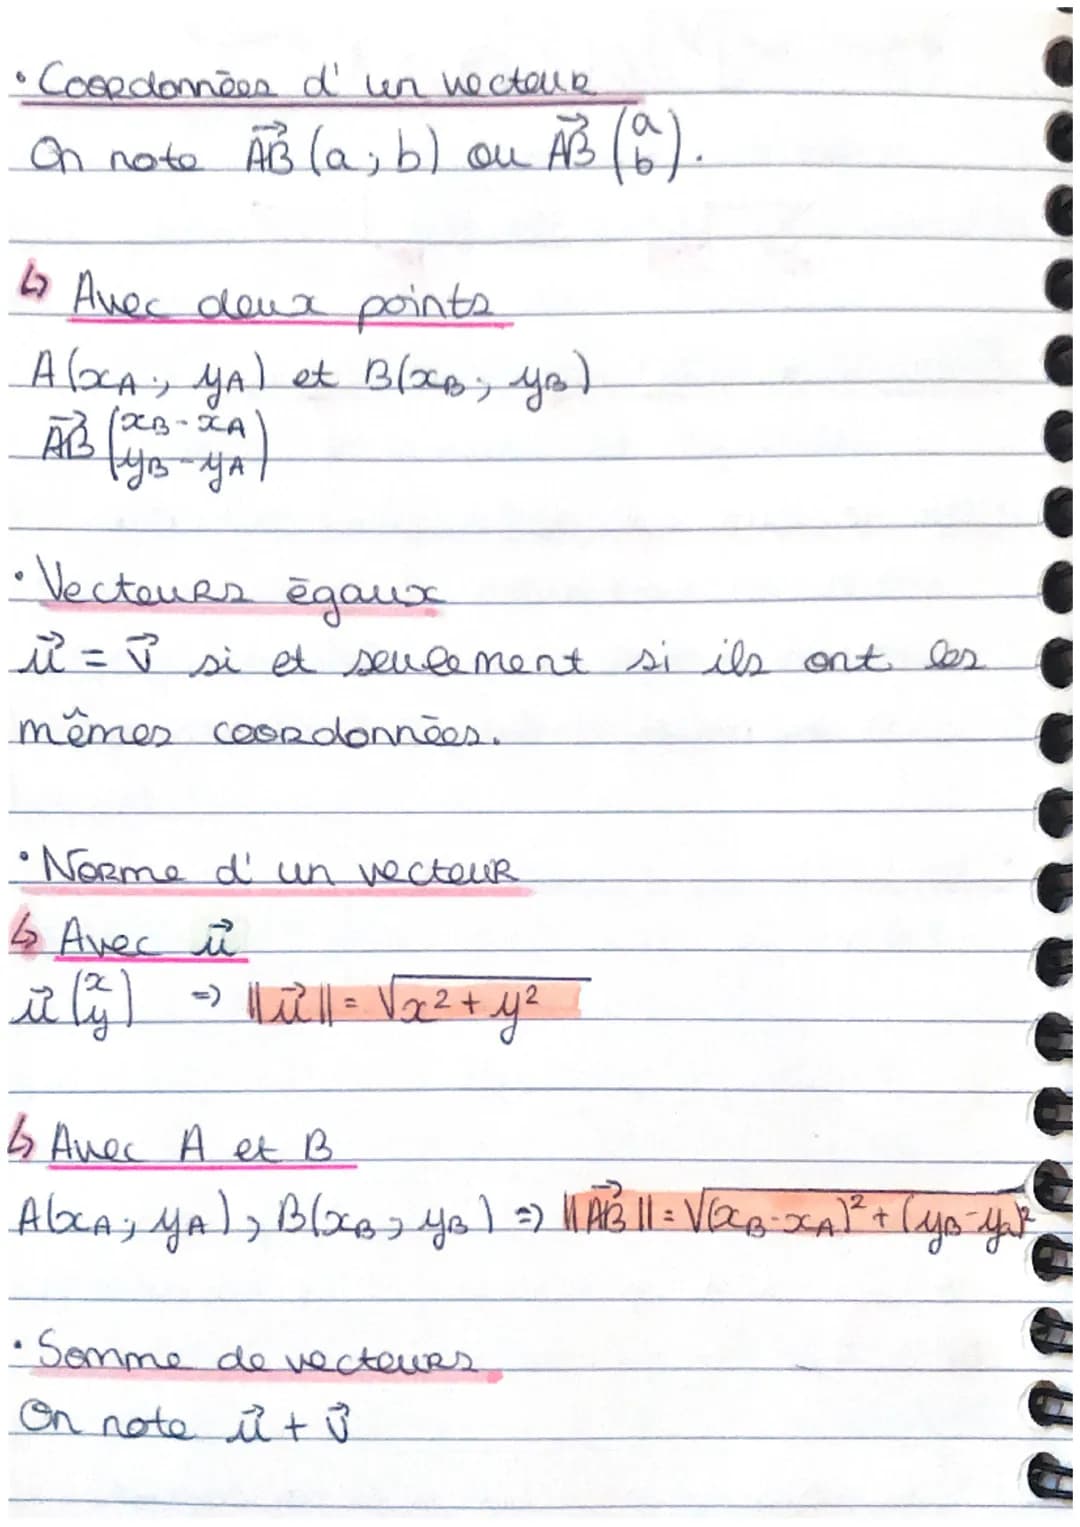 • Coordonnées d'un vecteur
On note $\vec{AB}$ (a ; b) ou $\vec{AB}\begin{pmatrix} a \\ b \end{pmatrix}$.
↳ Avec deux points
A($x_A$ ; $y_A$) et B($x_B$ ; $y_B$)
$\vec{AB}\begin{pmatrix} x_B - x_A \\ y_B - y_A \end{pmatrix}$
• Vecteurs égaux
$\vec{u} = \vec{v}$ si et seulement si ils ont les
mêmes coordonnées.
• Norme d'un vecteur
↳ Avec $\vec{u}$
$\vec{u}\begin{pmatrix} x \\ y \end{pmatrix}$ => $||\vec{u}|| = \sqrt{x^2 + y^2}$
↳ Avec A et B
A($x_A$ ; $y_A$) ; B($x_B$ ; $y_B$) => $||\vec{AB}|| = \sqrt{(x_B - x_A)^2 + (y_B - y_A)^2}$
• Somme de vecteurs
On note $\vec{u} + \vec{v}$